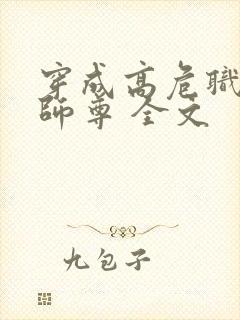 穿成高危職
師尊 全文
九包子